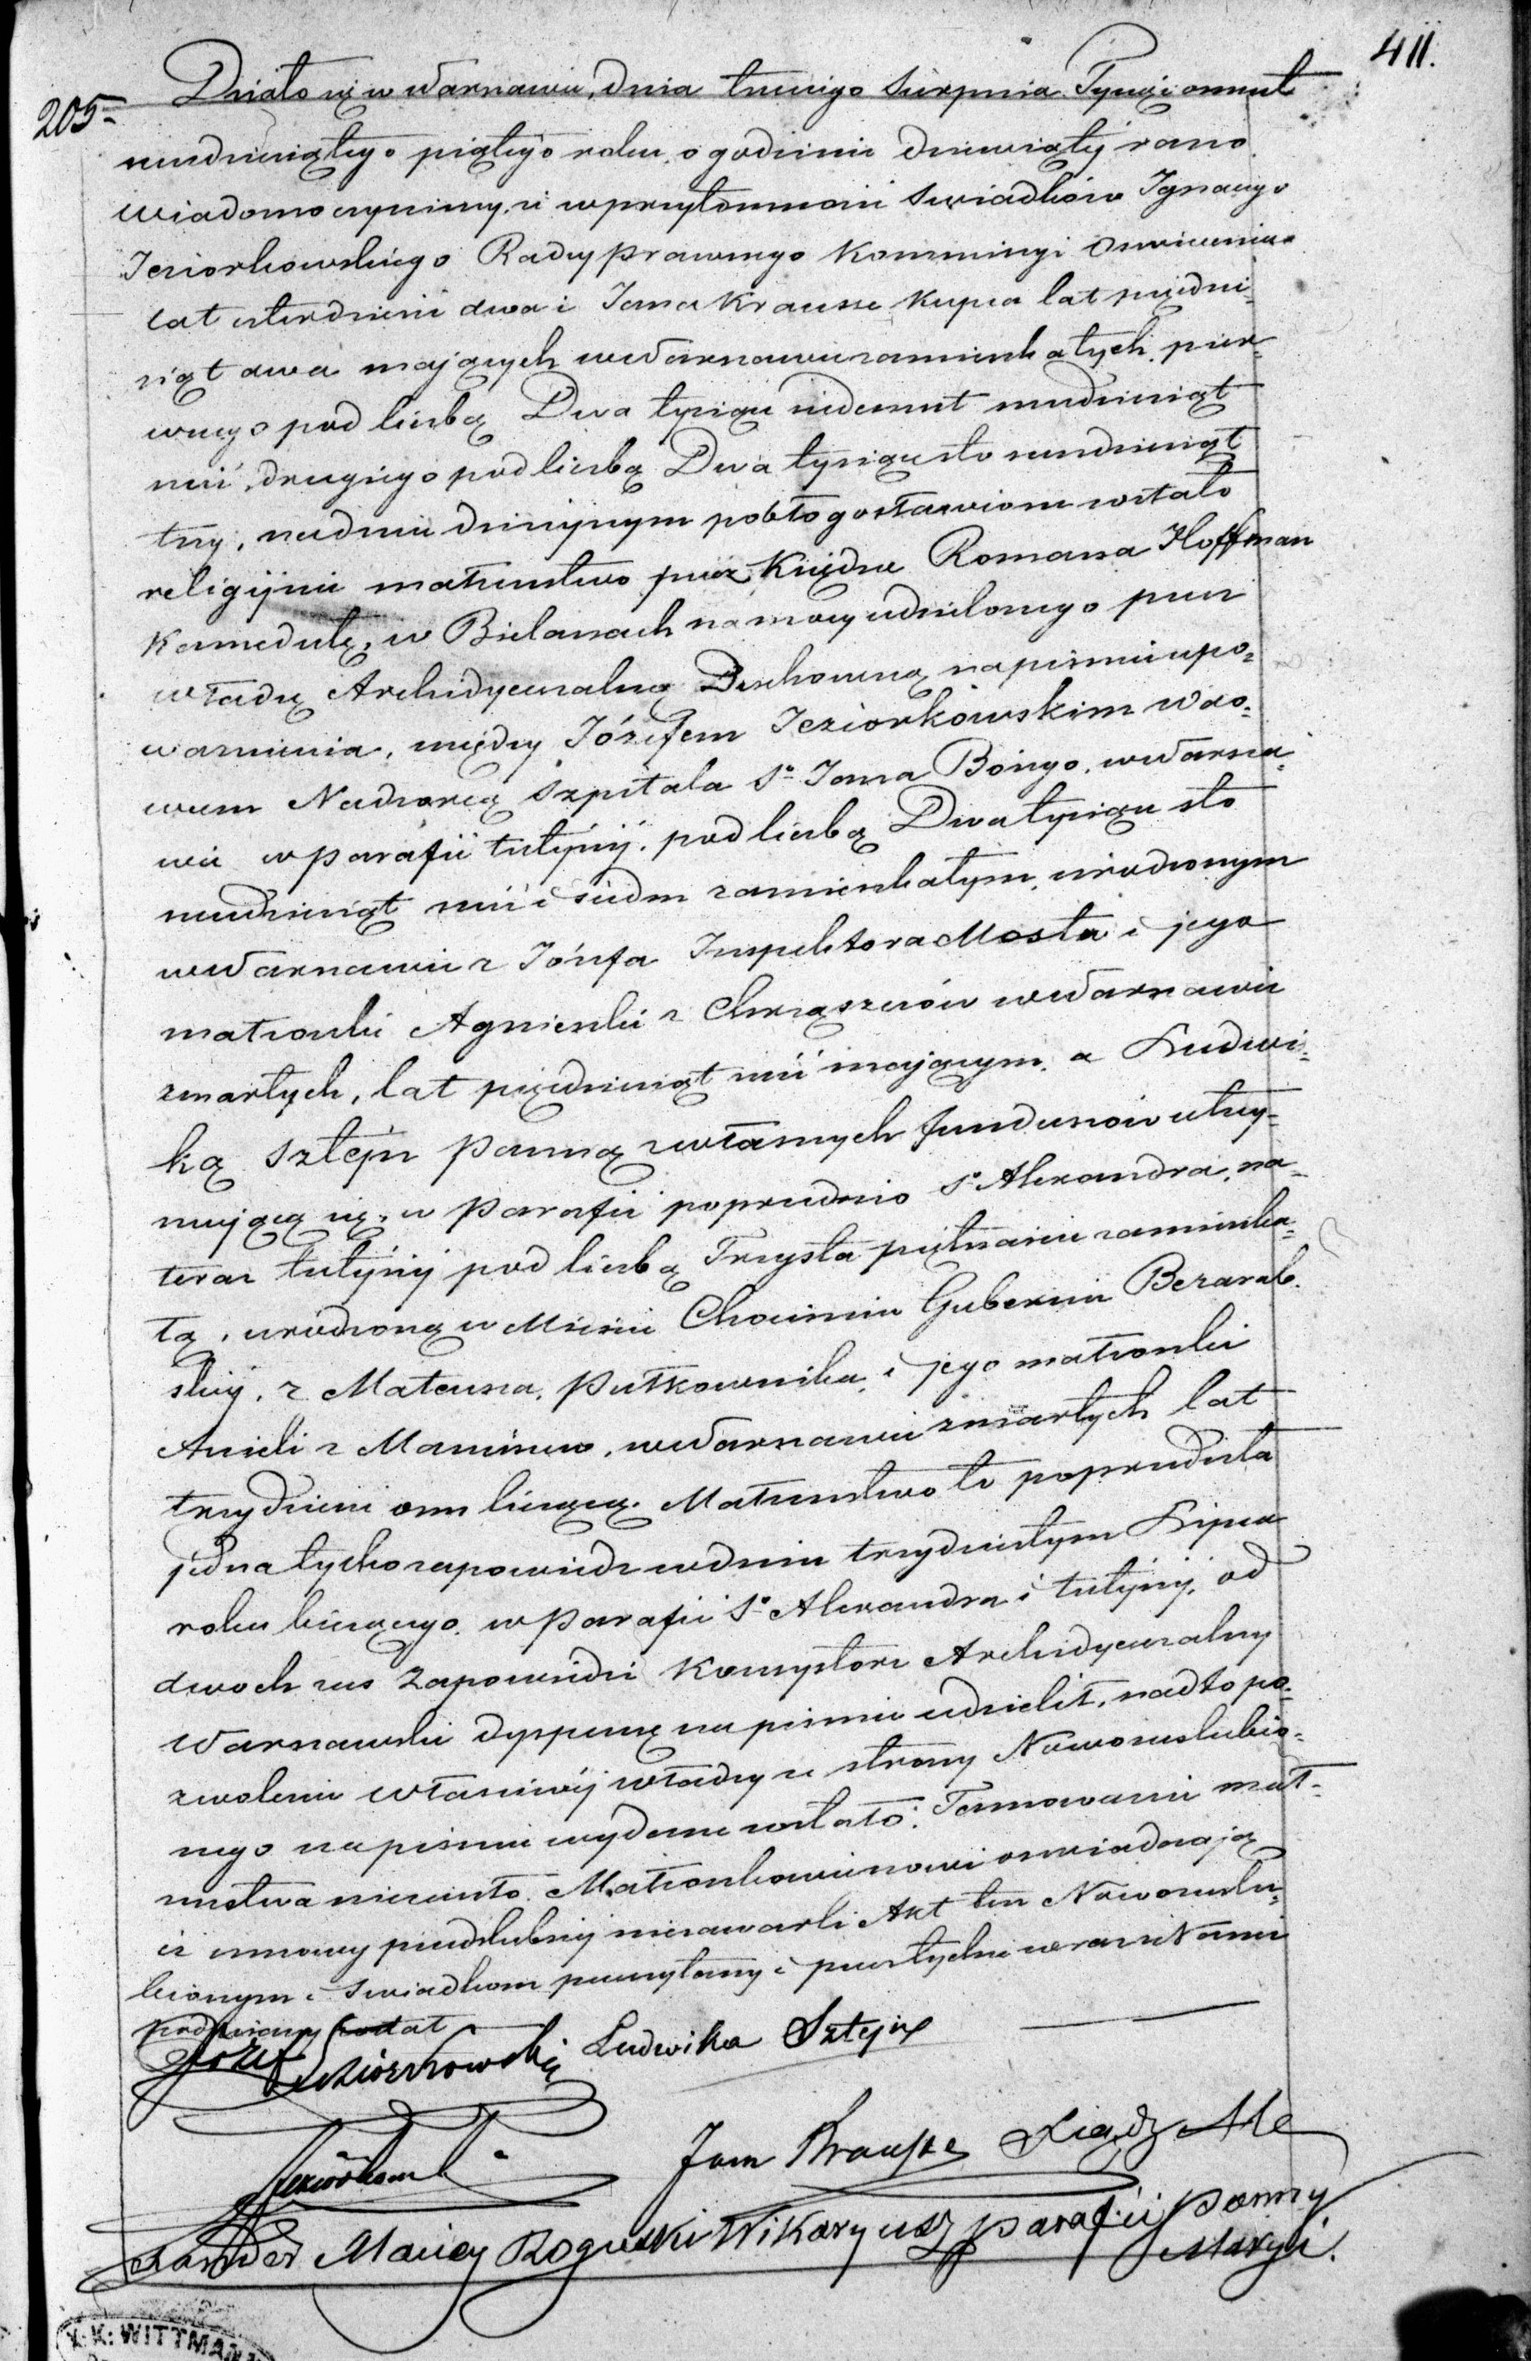 411.
205
Działo się w Warszawie, dnia trzeciego Sierpnia Tysiąc ośmset
sześdziesiątego piątego roku, o godzinie dziewiątej rano
Wiadomo czynimy, iż w przytomności Swiadków Ignacego
Jeziorkowskiego Radcy prawnego Kommissyi Oświecenia
lat czterdzieści dwa i Jana Krausse Kupca lat pięćdzie-
siąt dwa mających w Warszawie zamieszkałych, pier-
wszego pod liczbą Dwa tysiące siedemset sześdziesiąt
sześć, drugiego pod liczbą Dwa tysiące sto sześdziesiąt
trzy, na dniu dzisiejszym pobłogosławione zostało
religijnie małżeństwo przez Księdza Romana Hoffman
Kamedułę, w Bielanach na mocy udzielonego przez
władzę Archidyecezalną Duchowną na piśmie upo-
ważnienia, między Józefem Jeziorkowskim wdo-
wcem Nadzorcą Szpitala Sgo Jana Bożego, w Warsza-
wie w Parafii tutejszej, pod liczbą Dwa tysiące sto
sześdziesiąt sześć i siedm zamieszkałym, urodzonym
w Warszawie z Józefa Inspektora Mostu i jego
małżonki Agnieszki z Chrząszczów w Warszawie
zmarłych, lat pięćdziesiąt sześć mającym, a Ludwi-
ką Sztejn Panną z własnych funduszów utrzy-
mującą się, w Parafii poprzednio Sgo Alexandra, na
teraz tutejszej pod liczbą Trzysta piętnaście zamieszka-
łą, urodzoną w Mieście Chocimiu Gubernii Bezarab-
skiej, z Mateusza, Pułkownika, i jego małżonki
Anieli z, w Warszawie zmarłych lat
trzydzieści ośm liczącą. Małżeństwo to poprzedziła
jedna tylko zapowiedź w dniu trzydziestym Lipca
roku bieżącego, w Parafii Sgo Alexandra i tutejszej, od
dwoch zaś Zapowiedzi Konsystorz Archidyecezalny
Warszawski dyspensę na piśmie udzielił, nadto po-
zwolenie właściwej władzy ze strony Nowozaslubio-
nego na piśmie wydane zostało. Tamowanie mał-
żeństwa nie zaszło. Małżonkowie nowi oświadczają
iż umowy przedślubnej nie zawarli. Akt ten Nowozaślu-
bionym i Swiadkom przeczytany i przez tychże wraz z Nami
podpisany został
Józef Jeziorkowski Ludwika Sztejn
Jeziorkowski Jan Krausse Xiądz Ale
xander Maciey Rogulski Wikaryusz parafii Panny
Maryi.
K. K: WITTMAN